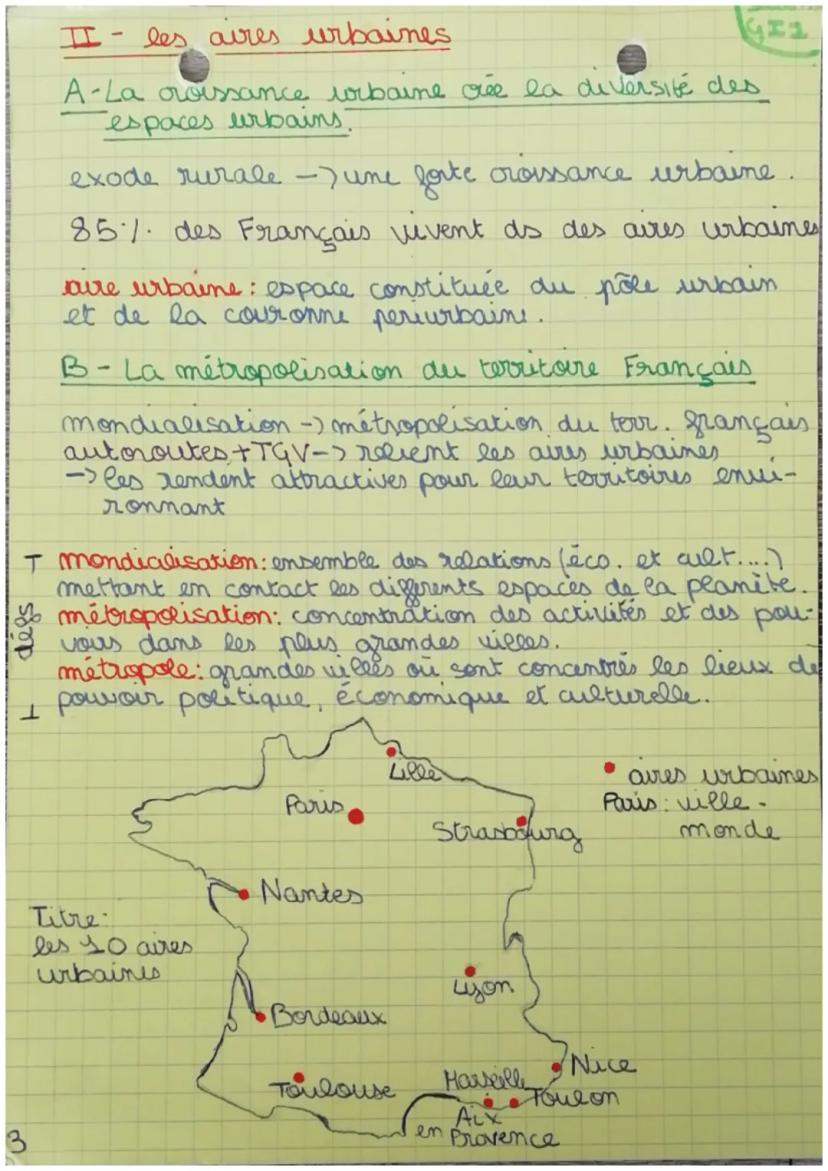 GI1
II - les aires urbaines
A - La croissance urbaine crée la diversité des
espaces urbains.
exode rurale -> une forte croissance urbaine.
85% des Français vivent ds des aires urbaines
aire urbaine : espace constituée du pôle urbain
et de la couronne periurbaine.
B - La métropolisation du territoire Français
mondialisation -> métropolisation du terr. français
autoroutes + TGV -> relient les aires urbaines
-> les rendent attractives pour leur territoires envi-
ronnant
défs
mondialisation : ensemble des relations (éco. et cult....)
mettant en contact les differents espaces de la planète.
métropolisation : concentration des activités et des pou-
vous dans les plus grandes villes.
métropole : grandes villes où sont concentrés les lieux de
pouvoir politique, économique et culturelle.
Lille
Paris
Strasbourg
aires urbaines
Paris : ville -
monde
Nantes
Titre :
les 10 aires
urbaines
Lyon
Bordeaux
Nice
Toulouse
Marseille
Toulon
Aix
en Provence
3